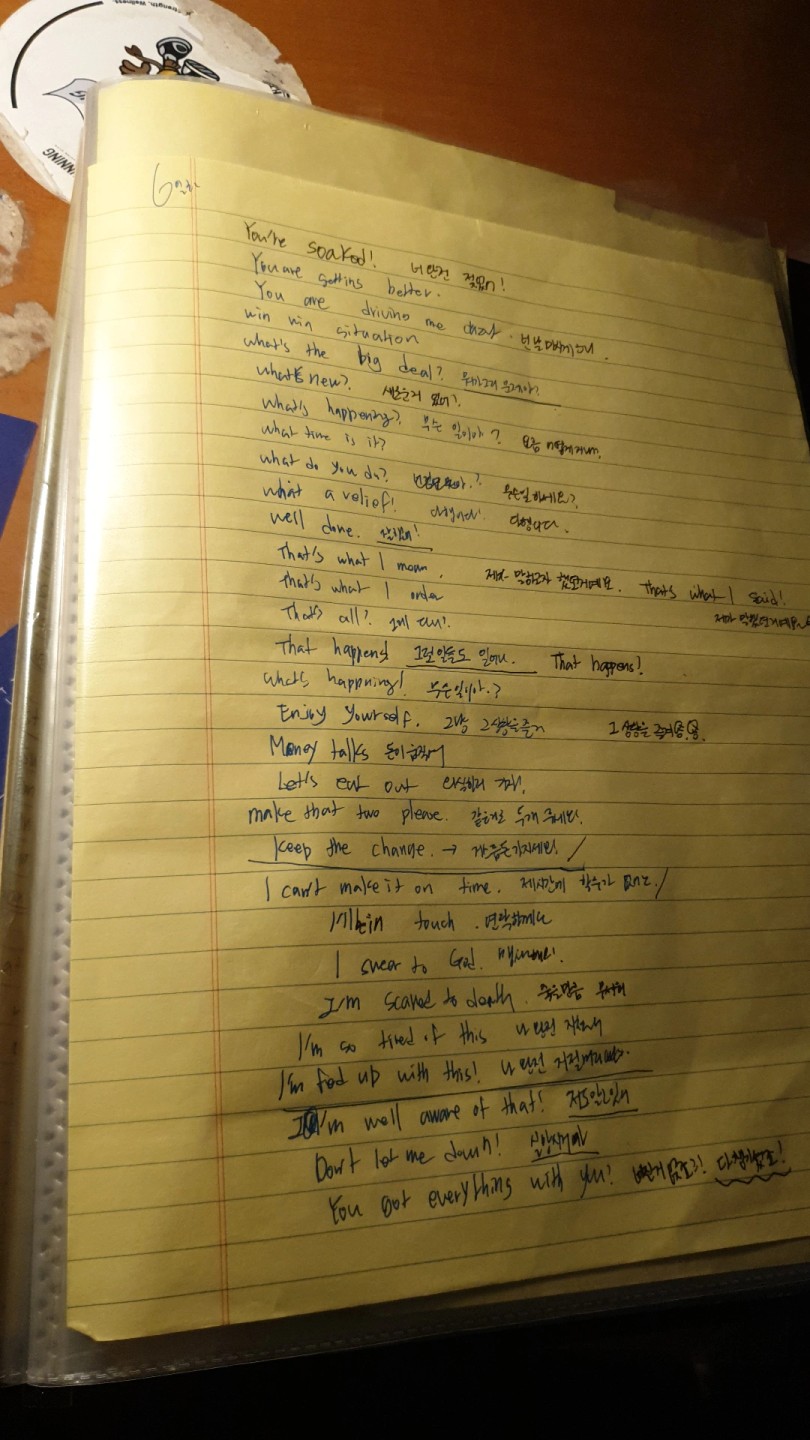 Strength, Wellness.
NNING
6일차
You're soaked! 너 완전 젖었어!
You are getting better.
You are driving me crazy. 넌 날 미치게 해.
win win situation
what's the big deal? 뭐가 그게 문제야?
what's new? 새로운거 있어?
what's happening? 무슨 일이야? 요즘 어떻게 지내.
what time is it?
what do you do? 무슨일하세요?
what a relief! 다행이다! 다행이다.
well done. 잘했어!
That's what I mean. 제가 말하고자 했던거예요. That's what I said!
제가 말했던거예요
That's what I order
That's all? 그게 다니?
That happens! 그런일들도 일어나. That happens!
what's happning! 무슨일이야.?
Enjoy yourself. 그냥 그상황을즐겨 그 상황을 즐겨
Money talks 돈이
Let's eat out 외식하러 가자.
make that two please. 같은걸로 두개 주세요.
keep the change. → 잔돈은가지세요.
I can't make it on time. 제시간에 할수가 없어
I'll be in touch. 연락할게
I swear to God. 맹세해요.
I'm scared to death. 죽을만큼 무서워
I'm so tired of this 나 완전 지쳤어
I'm fed up with this! 나 완전
I'm well aware of that! 저도알고있어
Don't let me down! 실망시키지마
You got everything with you? 다챙겼죠!